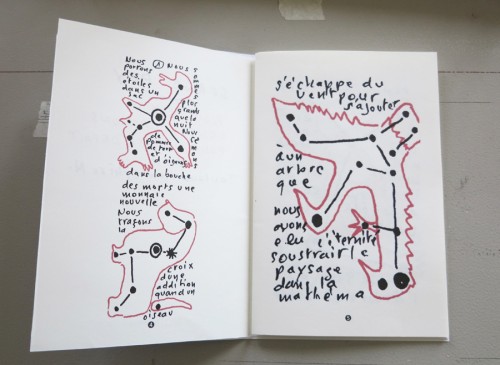 Nous
portons
des
étoiles
dans un
sac
Nous
plus
grands
que la
nuit
de
pommes
de terre
dans la bouche
des morts une
monnaie
nouvelle
Nous
traçons
la
croix
d'une
addition
quand un
oiseau
4
s'échappe du
vent pour
s'ajouter
à un
arbre
que
nous
avons
élu l'éternité
soustrait le
paysage
dans la
mathéma
5